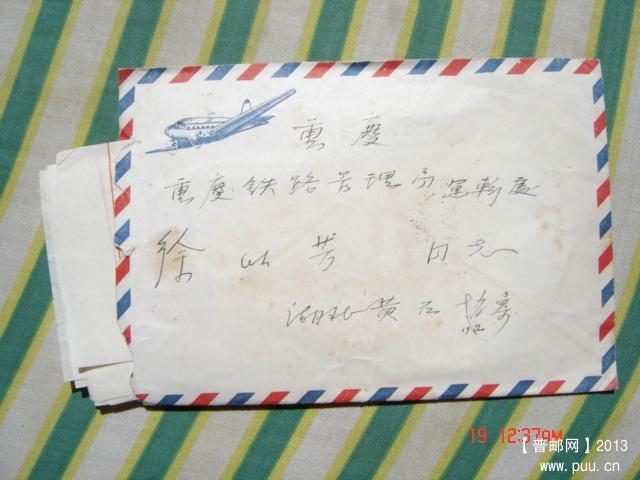 重慶
重慶铁路管理局運輸處
徐 芳 同志
湖北黄石 寄
19 12:37PM
【普邮网】2013
www.puu.cn